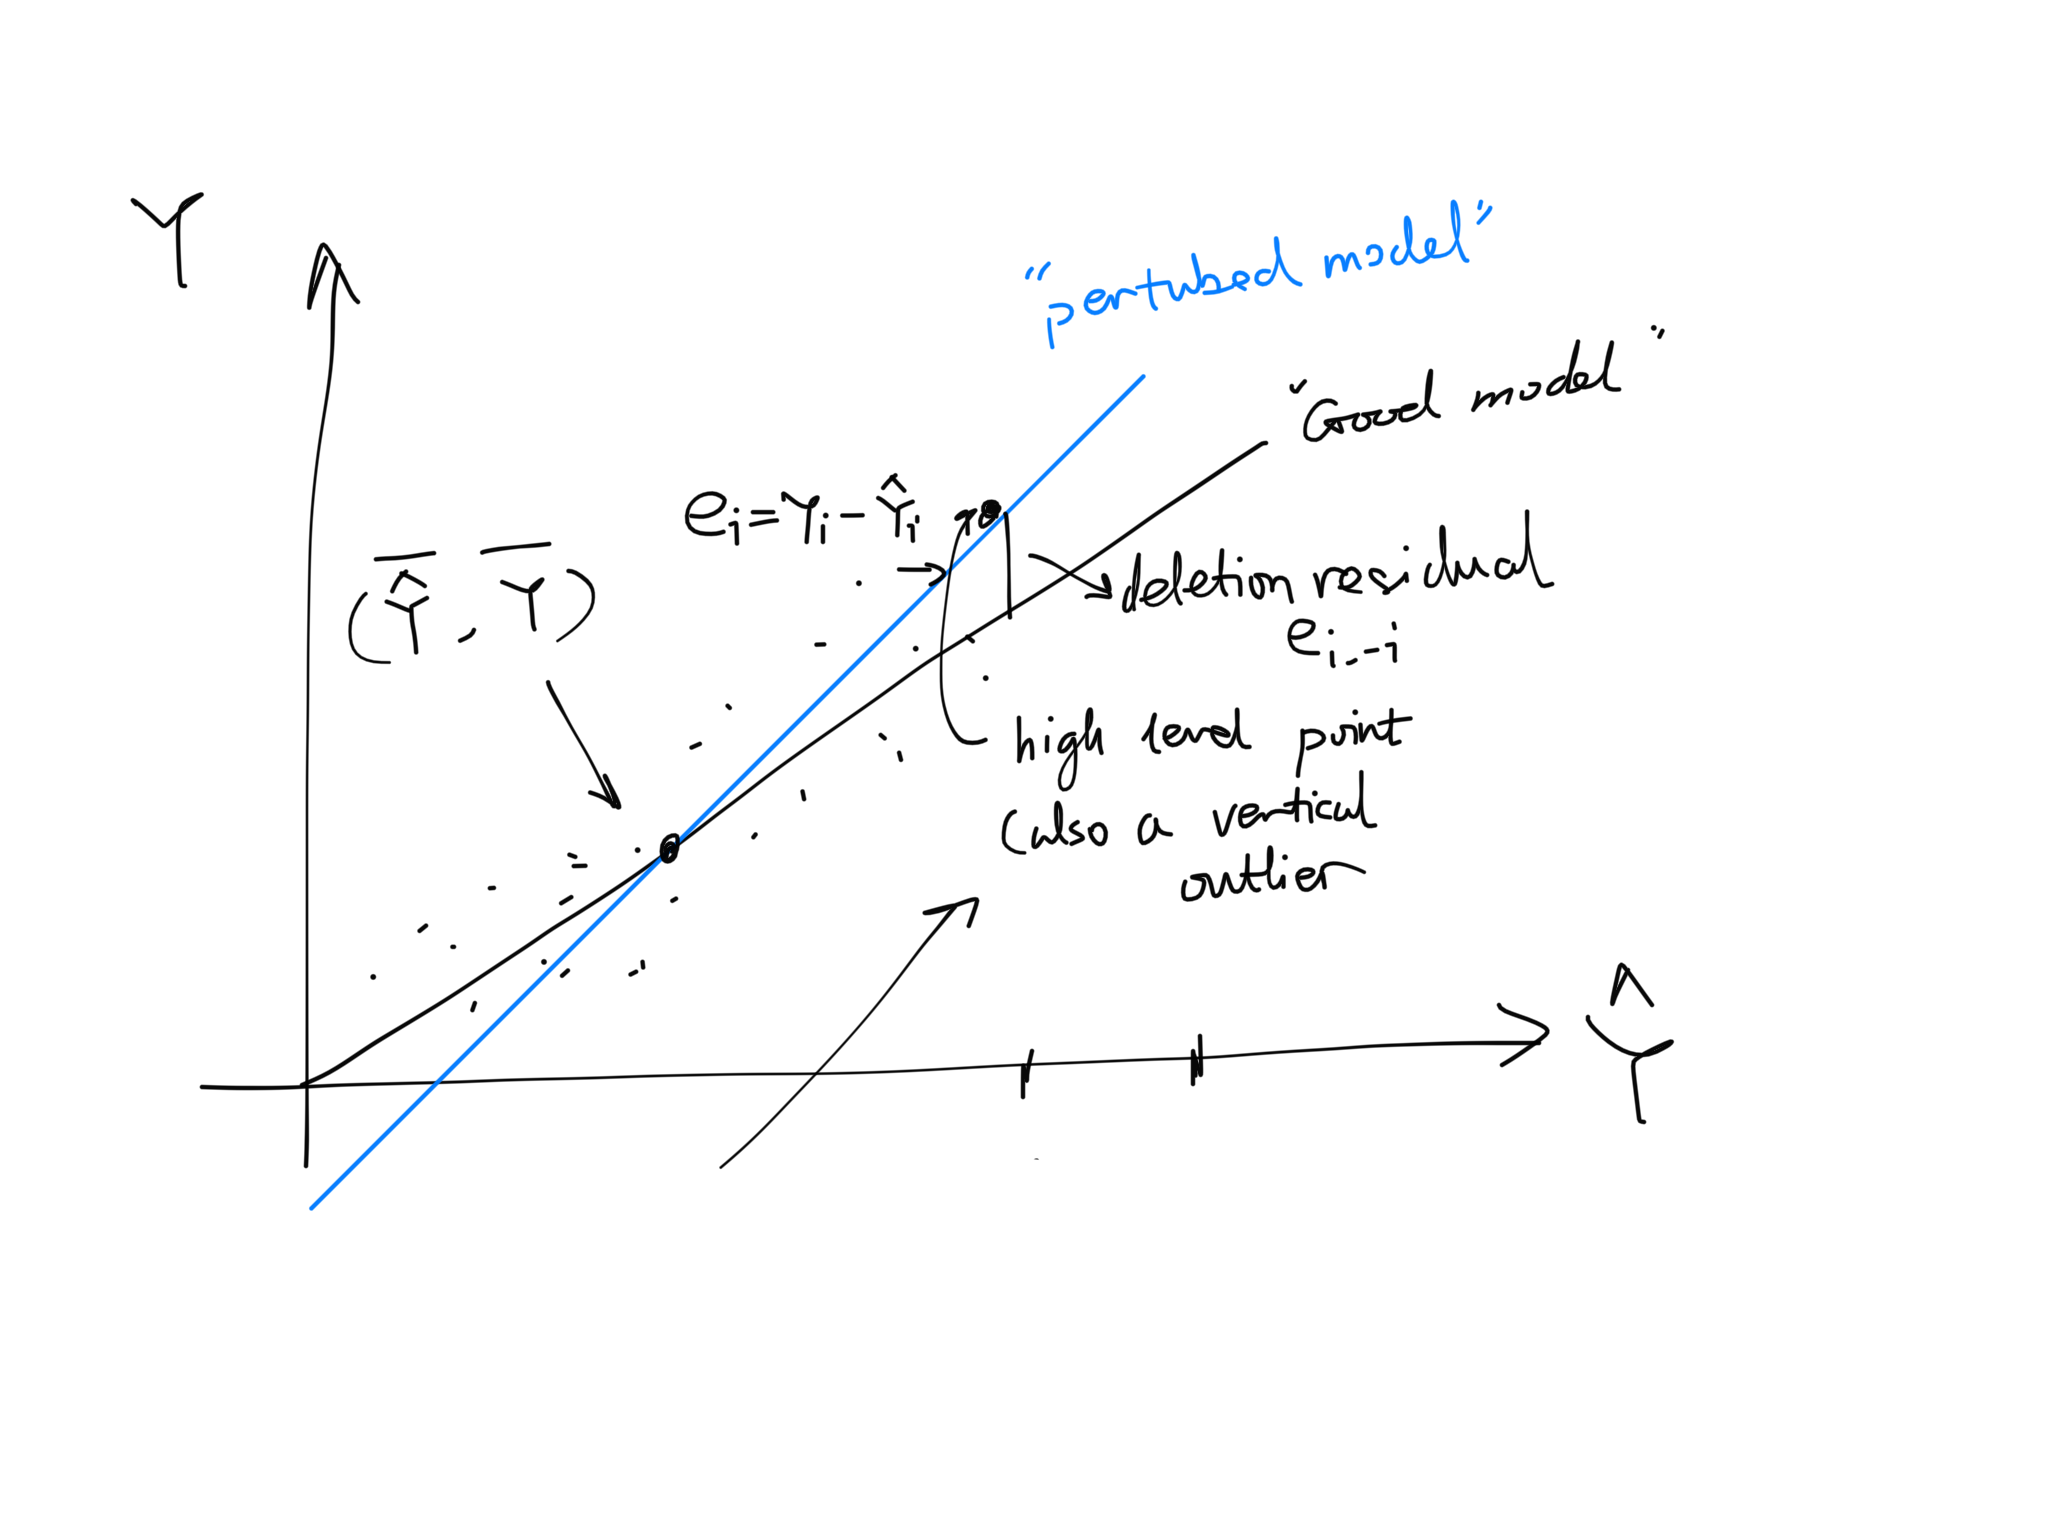 Y
"pertubed model"
"Good model"
eᵢ = Yᵢ - Ŷᵢ
(Ŷ̅, Y̅)
deletion residual
eᵢ,₋ᵢ
high level point
(also a vertical
outlier
Ŷ